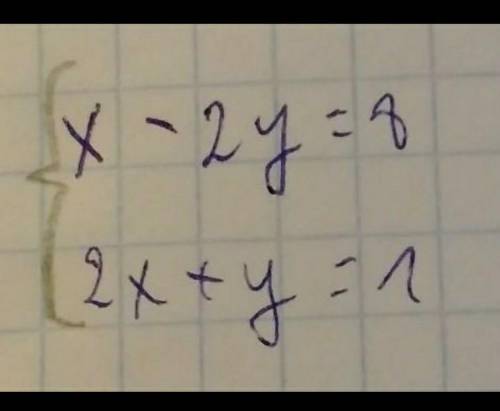 x - 2y = 8
2x + y = 1